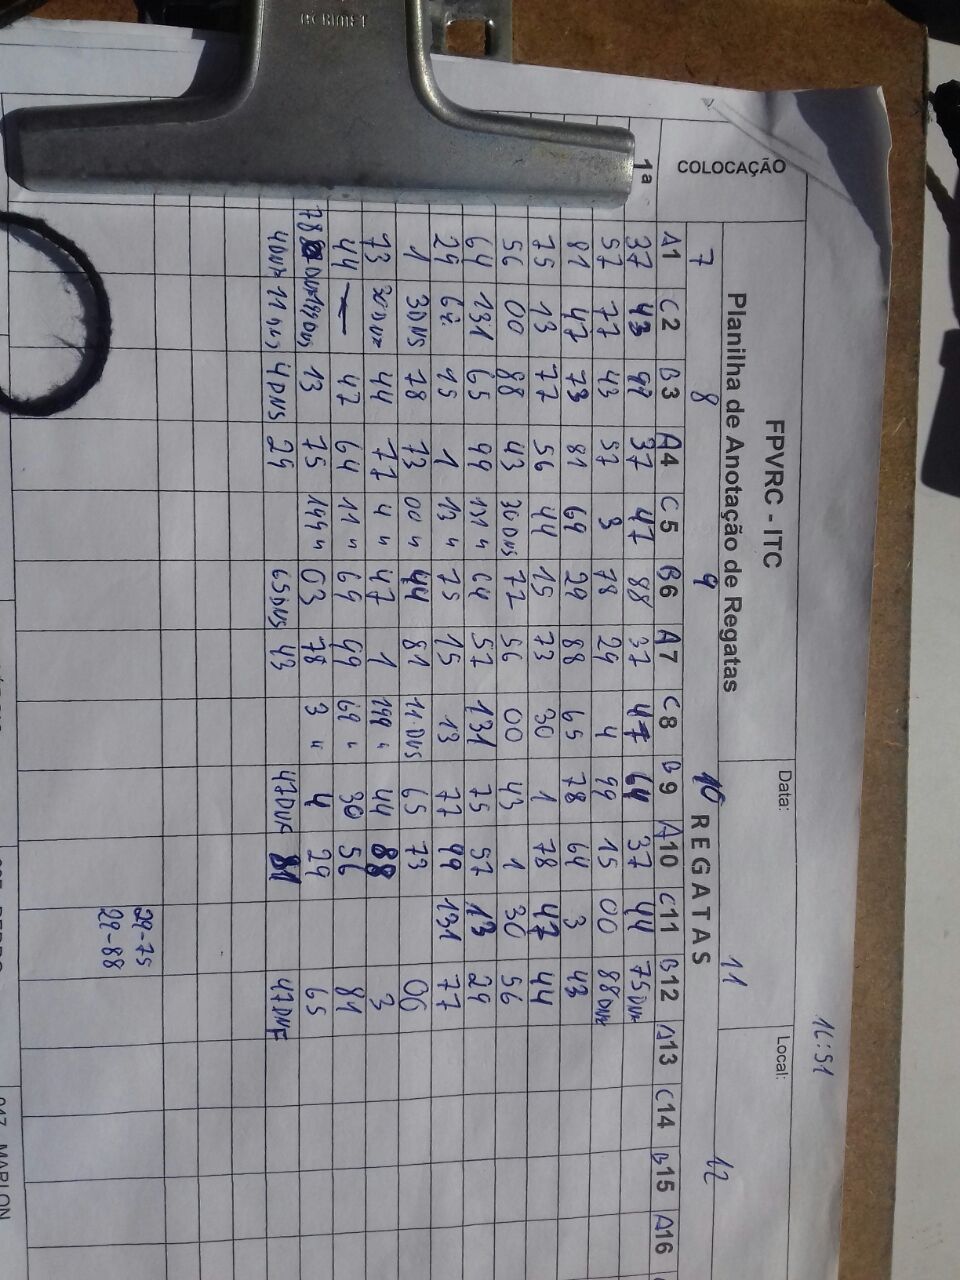 ACRIMET
FPVRC - ITC
Planilha de Anotação de Regatas
Data:
Local:
16:51
COLOCAÇÃO
7 8 9 10 11 12
REGATAS
A1 C2 B3 A4 C5 B6 A7 C8 B9 A10 C11 B12 A13 C14 B15 A16
1ª 37 43 99 37 47 88 37 47 64 37 44 75 DNF
57 77 43 57 3 78 29 4 99 15 00 88 DNF
81 47 73 81 69 29 88 65 78 64 3 43
75 13 77 56 44 15 73 30 1 78 47 44
56 00 88 43 30 DNS 72 56 00 43 1 30 56
64 131 65 99 131 " 64 57 131 75 57 13 29
29 15 1 13 " 75 15 13 77 99 131 77
1 3 DNS 78 73 00 " 44 81 11 DNS 65 73 00
73 30 DNF 44 77 4 " 47 1 199 " 44 88 3
44 — 47 64 11 " 69 99 69 " 30 56 81
78 13 75 199 " 03 78 3 " 4 29 65
4 DNF 11 DNS 4 DNS 29 65 DNS 43 47 DNF 81 47 DNF
29-75
29-88
017 MARLON